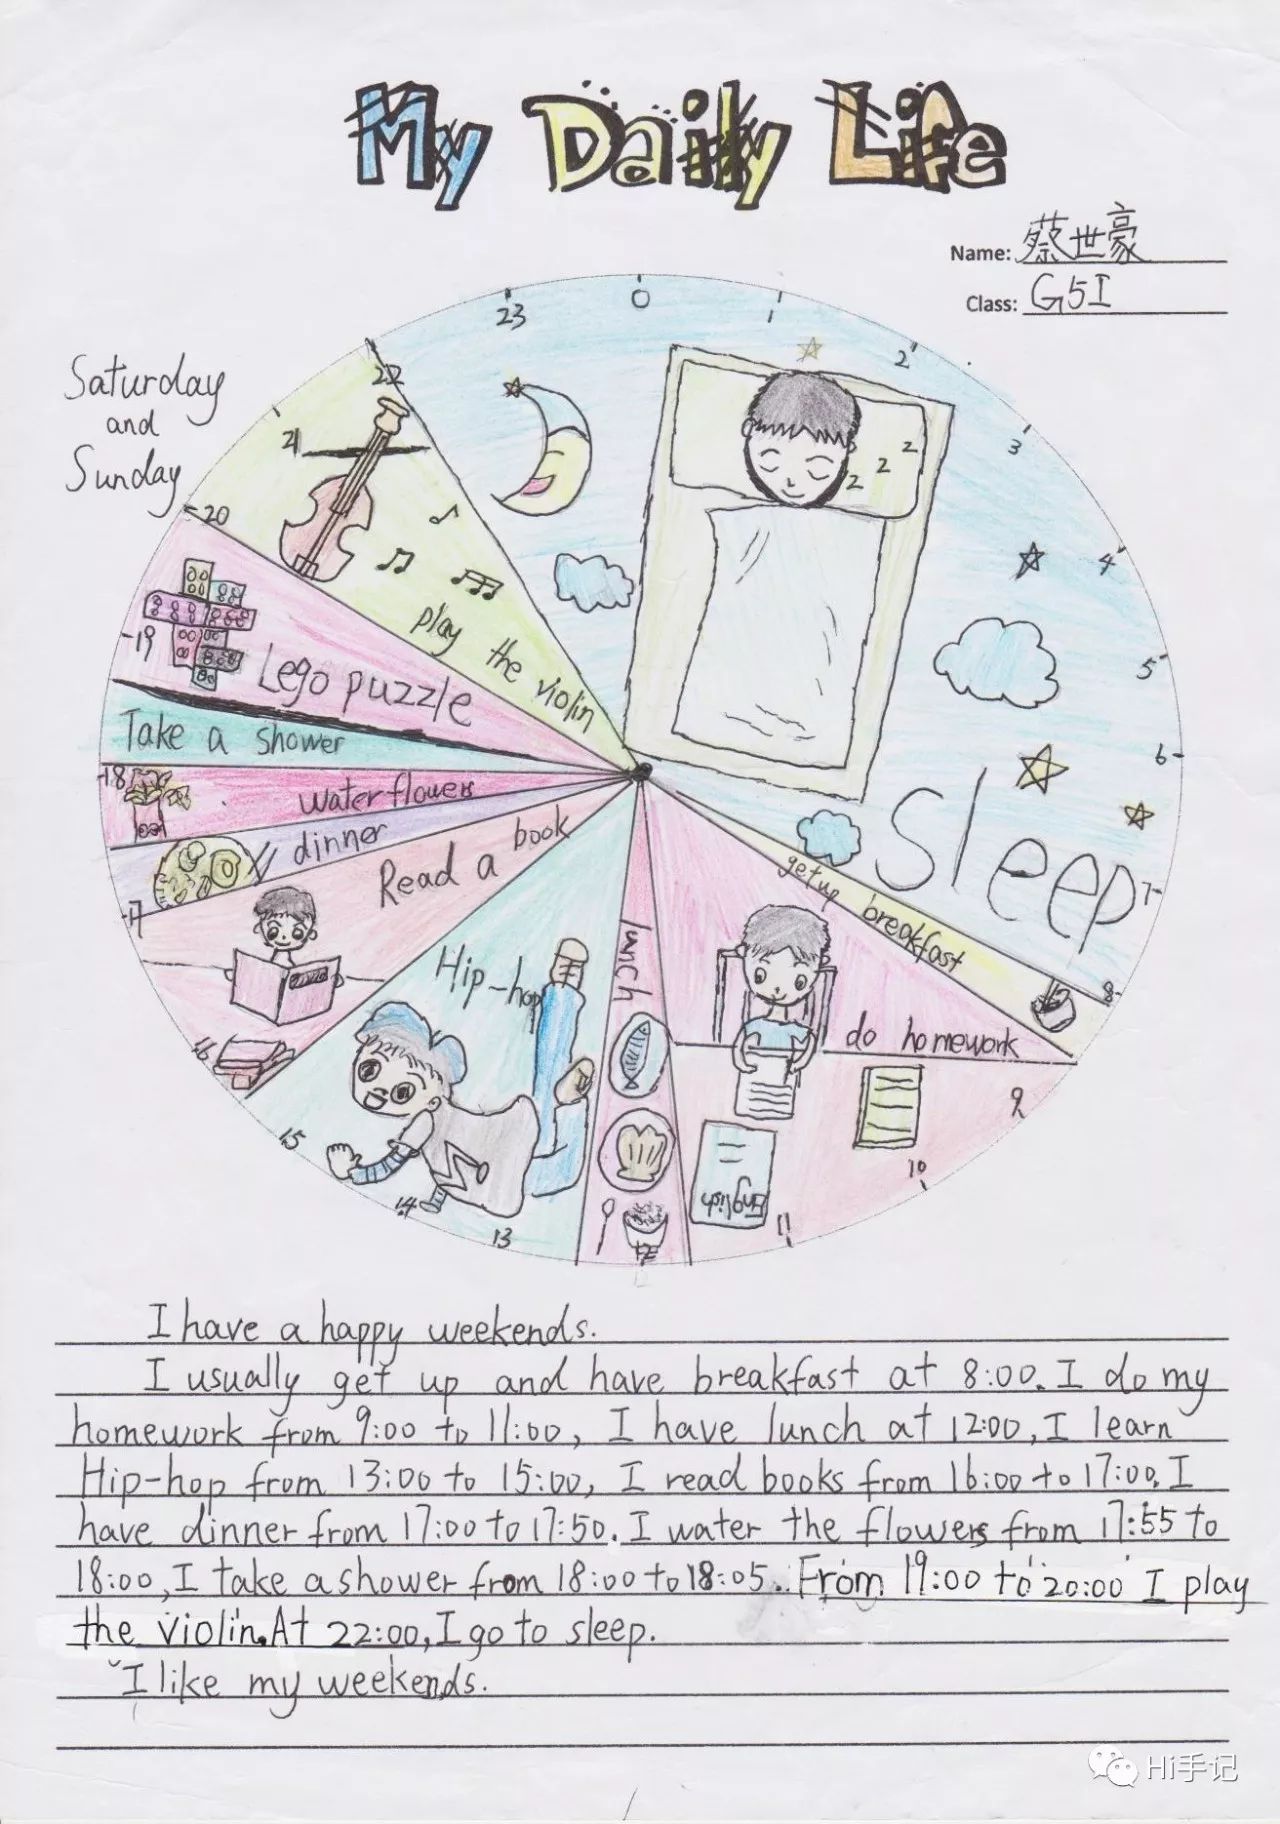 My Daily Life
Name: 蔡世豪
Class: G5I
Saturday
and
Sunday
0
1
2
3
4
5
6
7
8
9
10
11
12
13
14
15
16
17
18
19
20
21
22
23
z z z
Sleep
get up breakfast
do homework
English
lunch
Hip-hop
Read a book
dinner
water flowers
Take a shower
Lego puzzle
play the violin
I have a happy weekends.
I usually get up and have breakfast at 8:00. I do my
homework from 9:00 to 11:00, I have lunch at 12:00, I learn
Hip-hop from 13:00 to 15:00, I read books from 16:00 to 17:00. I
have dinner from 17:00 to 17:50. I water the flowers from 17:55 to
18:00, I take a shower from 18:00 to 18:05.. From 19:00 to 20:00 I play
the violin. At 22:00, I go to sleep.
I like my weekends.
Hi手记